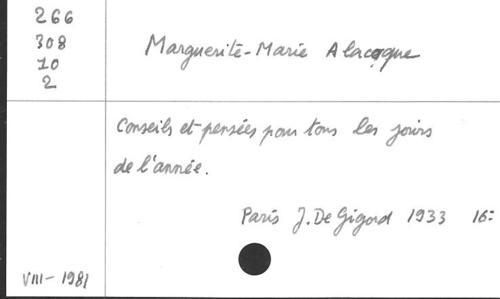 266
308
10
2
Marguerite-Marie Alacoque
Conseils et pensées pour tous les jours
de l'année.
Paris J. De Gigord 1933 16:
VIII-1981